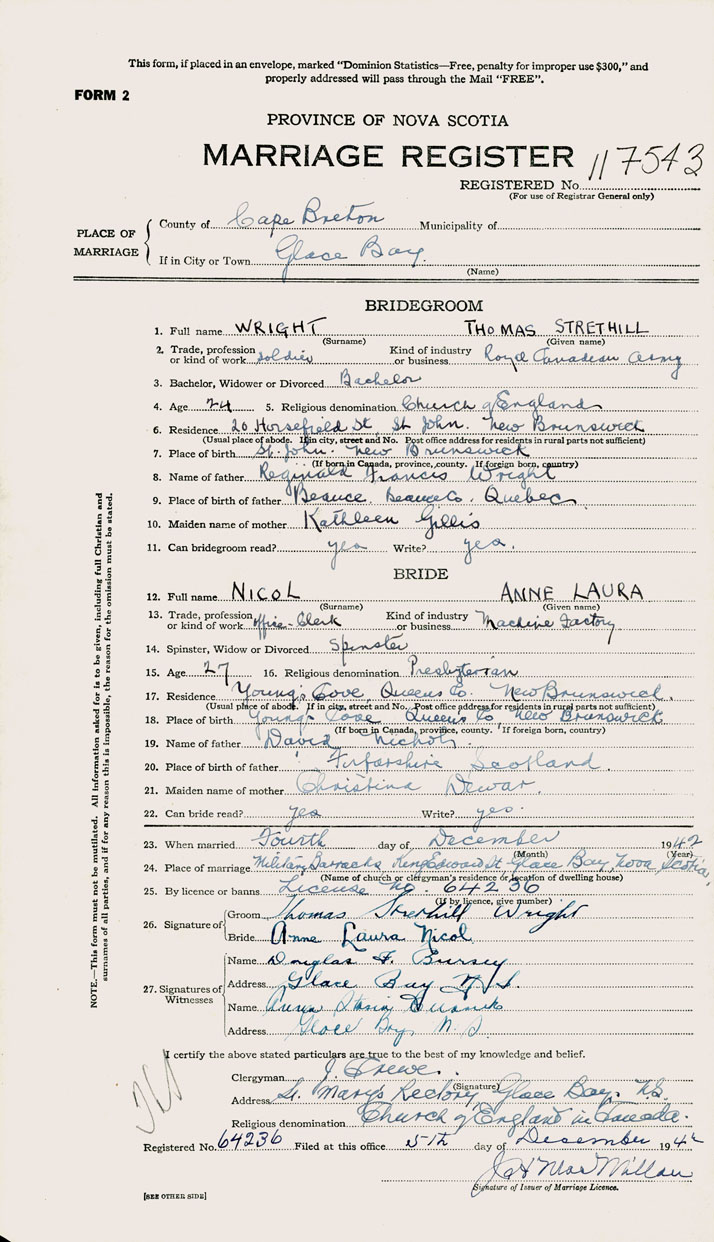 This form, if placed in an envelope, marked "Dominion Statistics—Free, penalty for improper use $300," and
properly addressed will pass through the Mail "FREE".
FORM 2
PROVINCE OF NOVA SCOTIA
MARRIAGE REGISTER
117543
REGISTERED No.
(For use of Registrar General only)
PLACE OF MARRIAGE
County of Cape Breton Municipality of
If in City or Town Glace Bay.
(Name)
BRIDEGROOM
1. Full name WRIGHT THOMAS STRETHILL
(Surname) (Given name)
2. Trade, profession or kind of work soldier Kind of industry or business Royal Canadian Army
3. Bachelor, Widower or Divorced Bachelor
4. Age 24 5. Religious denomination Church of England
6. Residence 20 Horsefield St, St John. New Brunswick
(Usual place of abode. If in city, street and No. Post office address for residents in rural parts not sufficient)
7. Place of birth St. John. New Brunswick
(If born in Canada, province, county. If foreign born, country)
8. Name of father Reginald Francis Wright
9. Place of birth of father Beauce, Beauce Co. Quebec
10. Maiden name of mother Kathleen Gillis
11. Can bridegroom read? yes Write? yes.
BRIDE
12. Full name NICOL ANNE LAURA
(Surname) (Given name)
13. Trade, profession or kind of work Office-Clerk Kind of industry or business Machine Factory
14. Spinster, Widow or Divorced Spinster
15. Age 27 16. Religious denomination Presbyterian
17. Residence Young's Cove, Queens Co. New Brunswick
(Usual place of abode. If in city, street and No. Post office address for residents in rural parts not sufficient)
18. Place of birth Young's Cove Queens Co New Brunswick
(If born in Canada, province, county. If foreign born, country)
19. Name of father David
20. Place of birth of father Forfarshire Scotland.
21. Maiden name of mother Christina Dewar.
22. Can bride read? yes Write? yes.
23. When married Fourth day of December 1942
(Month) (Year)
24. Place of marriage Military Barracks King Edward St Glace Bay, Nova Scotia,
(Name of church or clergyman's residence or location of dwelling house)
25. By licence or banns License No. 64236
(If by licence, give number)
26. Signature of
Groom Thomas Strethill Wright
Bride Anne Laura Nicol
27. Signatures of Witnesses
Name Douglas F. Bursey
Address Glace Bay N.S.
Name
Address Glace Bay, N.S.
I certify the above stated particulars are true to the best of my knowledge and belief.
Clergyman
(Signature)
Address St. Mary's Rectory, Glace Bay. N.S.
Religious denomination Church of England in Canada.
Registered No. 64236 Filed at this office 5th day of December 1942
J H MacMillan
Signature of Issuer of Marriage Licence.
[SEE OTHER SIDE]
NOTE.—This form must not be mutilated. All information asked for is to be given, including full Christian and
surnames of all parties, and if for any reason this is impossible, the reason for the omission must be stated.